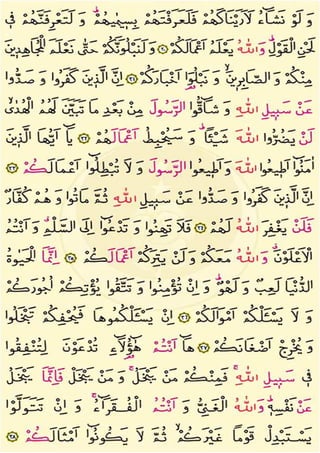 وَ لَوْ نَشَٓاءُ لَاَرَيْنَاكَهُمْ فَلَعَرَفْتَهُمْ بِس۪يمٰيهُمْۜ وَ لَتَعْرِفَنَّهُمْ ف۪ي
لَحْنِ الْقَوْلِۜ وَاللّٰهُ يَعْلَمُ اَعْمَالَكُمْ ﴿٣٠﴾ وَ لَنَبْلُوَنَّكُمْ حَتّٰى نَعْلَمَ الْمُجَاهِد۪ينَ
مِنْكُمْ وَ الصَّابِر۪ينَۙ وَ نَبْلُوَ۬ا اَخْبَارَكُمْ ﴿٣١﴾ اِنَّ الَّذ۪ينَ كَفَرُوا وَ صَدُّوا
عَنْ سَب۪يلِ اللّٰهِ وَ شَٓاقُّوا الرَّسُولَ مِنْ بَعْدِ مَا تَبَيَّنَ لَهُمُ الْهُدٰىۙ
لَنْ يَضُرُّوا اللّٰهَ شَيْـًٔاۜ وَ سَيُحْبِطُ اَعْمَالَهُمْ ﴿٣٢﴾ يَٓا اَيُّهَا الَّذ۪ينَ
اٰمَنُٓوا اَط۪يعُوا اللّٰهَ وَ اَط۪يعُوا الرَّسُولَ وَ لَا تُبْطِلُٓوا اَعْمَالَكُمْ ﴿٣٣﴾
اِنَّ الَّذ۪ينَ كَفَرُوا وَ صَدُّوا عَنْ سَب۪يلِ اللّٰهِ ثُمَّ مَاتُوا وَ هُمْ كُفَّارٌ
فَلَنْ يَغْفِرَ اللّٰهُ لَهُمْ ﴿٣٤﴾ فَلَا تَهِنُوا وَ تَدْعُٓوا اِلَى السَّلْمِۗ وَ اَنْتُمُ
الْاَعْلَوْنَۗ وَاللّٰهُ مَعَكُمْ وَ لَنْ يَتِرَكُمْ اَعْمَالَكُمْ ﴿٣٥﴾ اِنَّمَا الْحَيٰوةُ
الدُّنْيَا لَعِبٌ وَ لَهْوٌۜ وَ اِنْ تُؤْمِنُوا وَ تَتَّقُوا يُؤْتِكُمْ اُجُورَكُمْ
وَ لَا يَسْـَٔلْكُمْ اَمْوَالَكُمْ ﴿٣٦﴾ اِنْ يَسْـَٔلْكُمُوهَا فَيُحْفِكُمْ تَبْخَلُوا
وَ يُخْرِجْ اَضْغَانَكُمْ ﴿٣٧﴾ هَٓا اَنْتُمْ هٰٓؤُ۬لَٓاءِ تُدْعَوْنَ لِتُنْفِقُوا
ف۪ي سَب۪يلِ اللّٰهِۚ فَمِنْكُمْ مَنْ يَبْخَلُۚ وَ مَنْ يَبْخَلْ فَاِنَّمَا يَبْخَلُ
عَنْ نَفْسِه۪ۜ وَاللّٰهُ الْغَنِيُّ وَ اَنْتُمُ الْفُقَـرَٓاءُۚ وَ اِنْ تَتَوَلَّوْا
يَسْـتَبْدِلْ قَوْمًا غَيْرَكُمْۙ ثُمَّ لَا يَكُونُٓوا اَمْثَالَكُمْ ﴿٣٨﴾